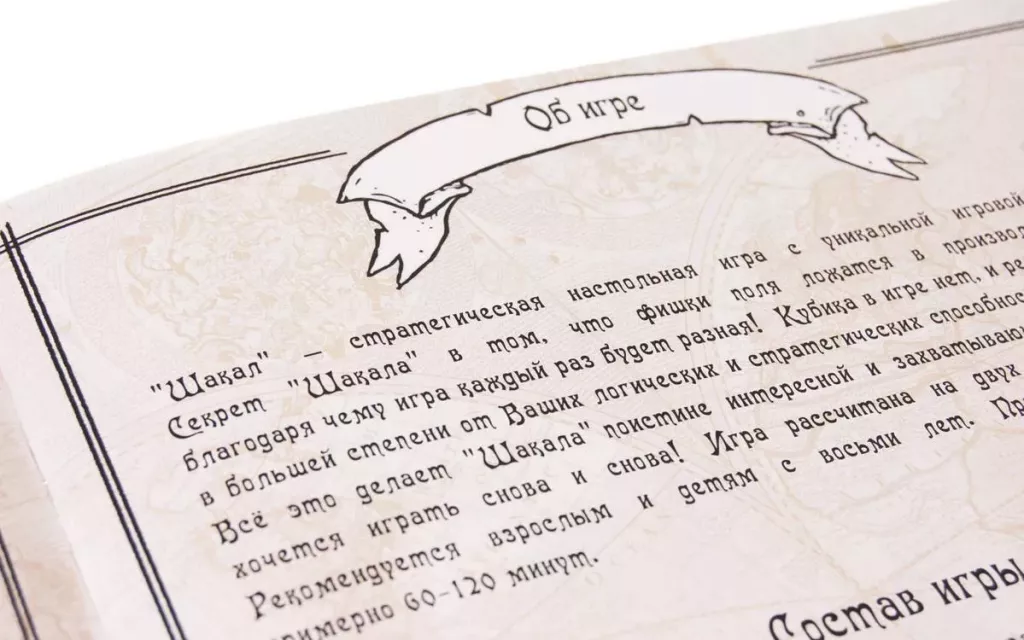 Об игре
"Шакал" – стратегическая настольная игра с уникальной игровой
Секрет "Шакала" в том, что фишки поля ложатся в
благодаря чему игра каждый раз будет разная! Кубика в игре нет, и
в большей степени от Ваших логических и стратегических
Всё это делает "Шакала" поистине интересной и
хочется играть снова и снова! Игра рассчитана на двух
Рекомендуется взрослым и детям с восьми лет.
60-120 минут.
Состав игры